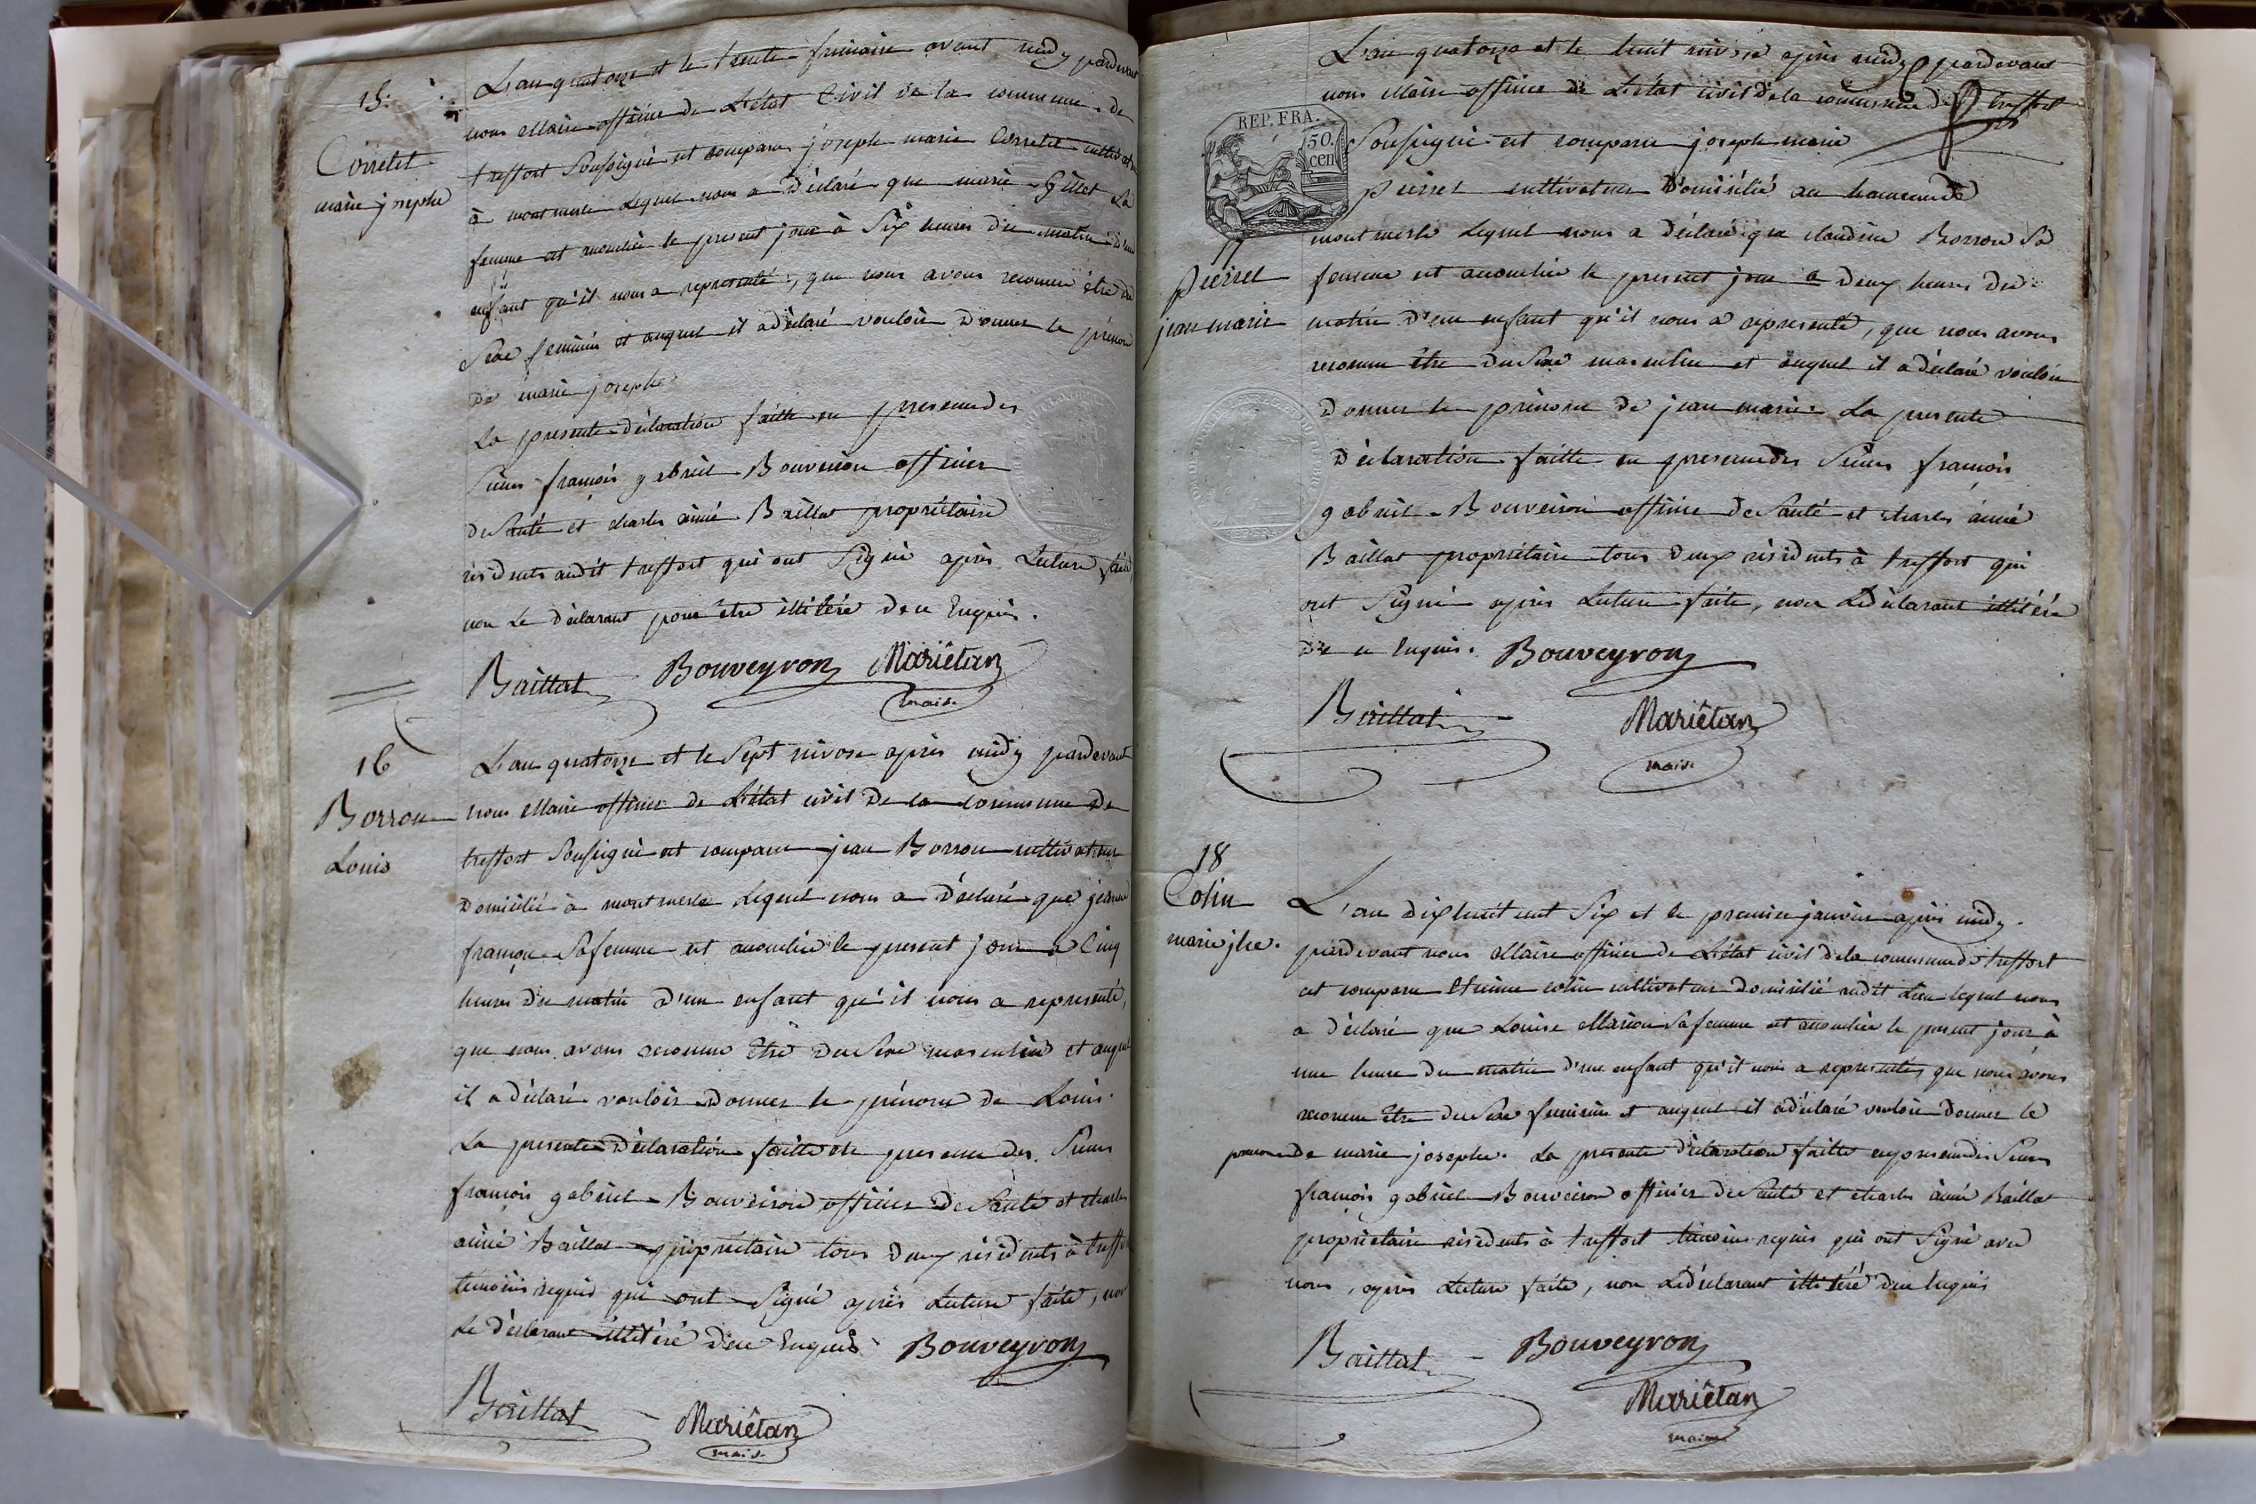 15.
Corretet
marie josephe
L'an quatorze et le trente frimaire avant midy pardevant
nous Maire officier de L'état Civil de la commune de
treffort soussigné est comparu joseph marie Corretet cultivateur
à montmerle Lequel nous a déclaré que marie Gillet sa
femme est accouchée le present jour à Six heures du matin d'un
enfant qu'il nous a representé, que nous avons reconnu être du
Sexe feminin et auquel il a déclaré vouloir Donner le prénom
de marie josephe
La presente déclaration faitte en presence des
Sieurs françois gabriel Bouveiron officier
de Santé et charles aimé Baillat propriétaire
résidents audit treffort qui ont Signé après Lecture faite
non Le déclarant pour être illitéré de ce Enquis.
Baillat Bouveyron Mariêtan
maire
16
Borron
Louis
L'an quatorze et le Sept nivose après midy pardevant
nous Maire officier de L'état civil De la commune De
treffort Soussigné est comparu jean Borron cultivateur
Domicilié à montmerle Lequel nous a Déclaré que jeanne
françon Sa femme est accouchée le present jour a Cinq
heures du matin d'un enfant qu'il nous a representé,
que nous avons reconnu être du Sexe masculin et auquel
il a déclaré vouloir Donner le prénom de Louis.
La presente Déclaration faitte en presence des Sieurs
françois gabriel Bouveiron officier de Santé et charles
aimé Baillat propriétaire tous deux résidents à treffort
temoins requis qui ont Signé après Lecture faite, non
Le déclarant illitéré De ce Enquis Bouveyron
Baillat Mariêtan
maire
L'an quatorze et le huit nivose après midy pardevant
nous Maire officier de L'état civil de la commune de treffort
REP. FRA.
50.
cen
Soussigné est comparu joseph marie
pierrel cultivateur Domicilié au hameau de
17
pierrel
jean marie
montmerle Lequel nous a déclaré que claudine Borron Sa
femme est accouchée le present jour a deux heures du
matin d'un enfant qu'il nous a representé, que nous avons
reconnu être du Sexe masculin et auquel il a déclaré vouloir
Donner le prénom de jean marie. La presente
Déclaration faitte en presence des Sieurs françois
gabriel Bouveiron officier de Santé et charles aimé
Baillat propriétaire tous deux résidents à treffort qui
ont Signé après Lecture faite, non Le déclarant illitéré
de ce Enquis. Bouveyron
Baillat Mariêtan
maire
18
Colin
marie jhe.
L'an dix huit cent Six et le premier janvier après midy
pardevant nous Maire officier de L'état civil de la commune de treffort
est comparu Etienne colin cultivateur Domicilié audit Lieu lequel nous
a déclaré que Louise Marion Sa femme est accouchée le present jour à
une heure du matin d'un enfant qu'il nous a representé, que nous avons
reconnu être du Sexe feminin et auquel il a déclaré vouloir Donner le
prenom De marie josephe. La presente déclaration faitte en presence des Sieurs
françois gabriel Bouveiron officier de Santé et charles aimé Baillat
propriétaire résidents à treffort temoins requis qui ont Signé avec
nous, après Lecture faite, non Le déclarant illitéré de ce Enquis
Baillat Bouveyron
Mariêtan
maire